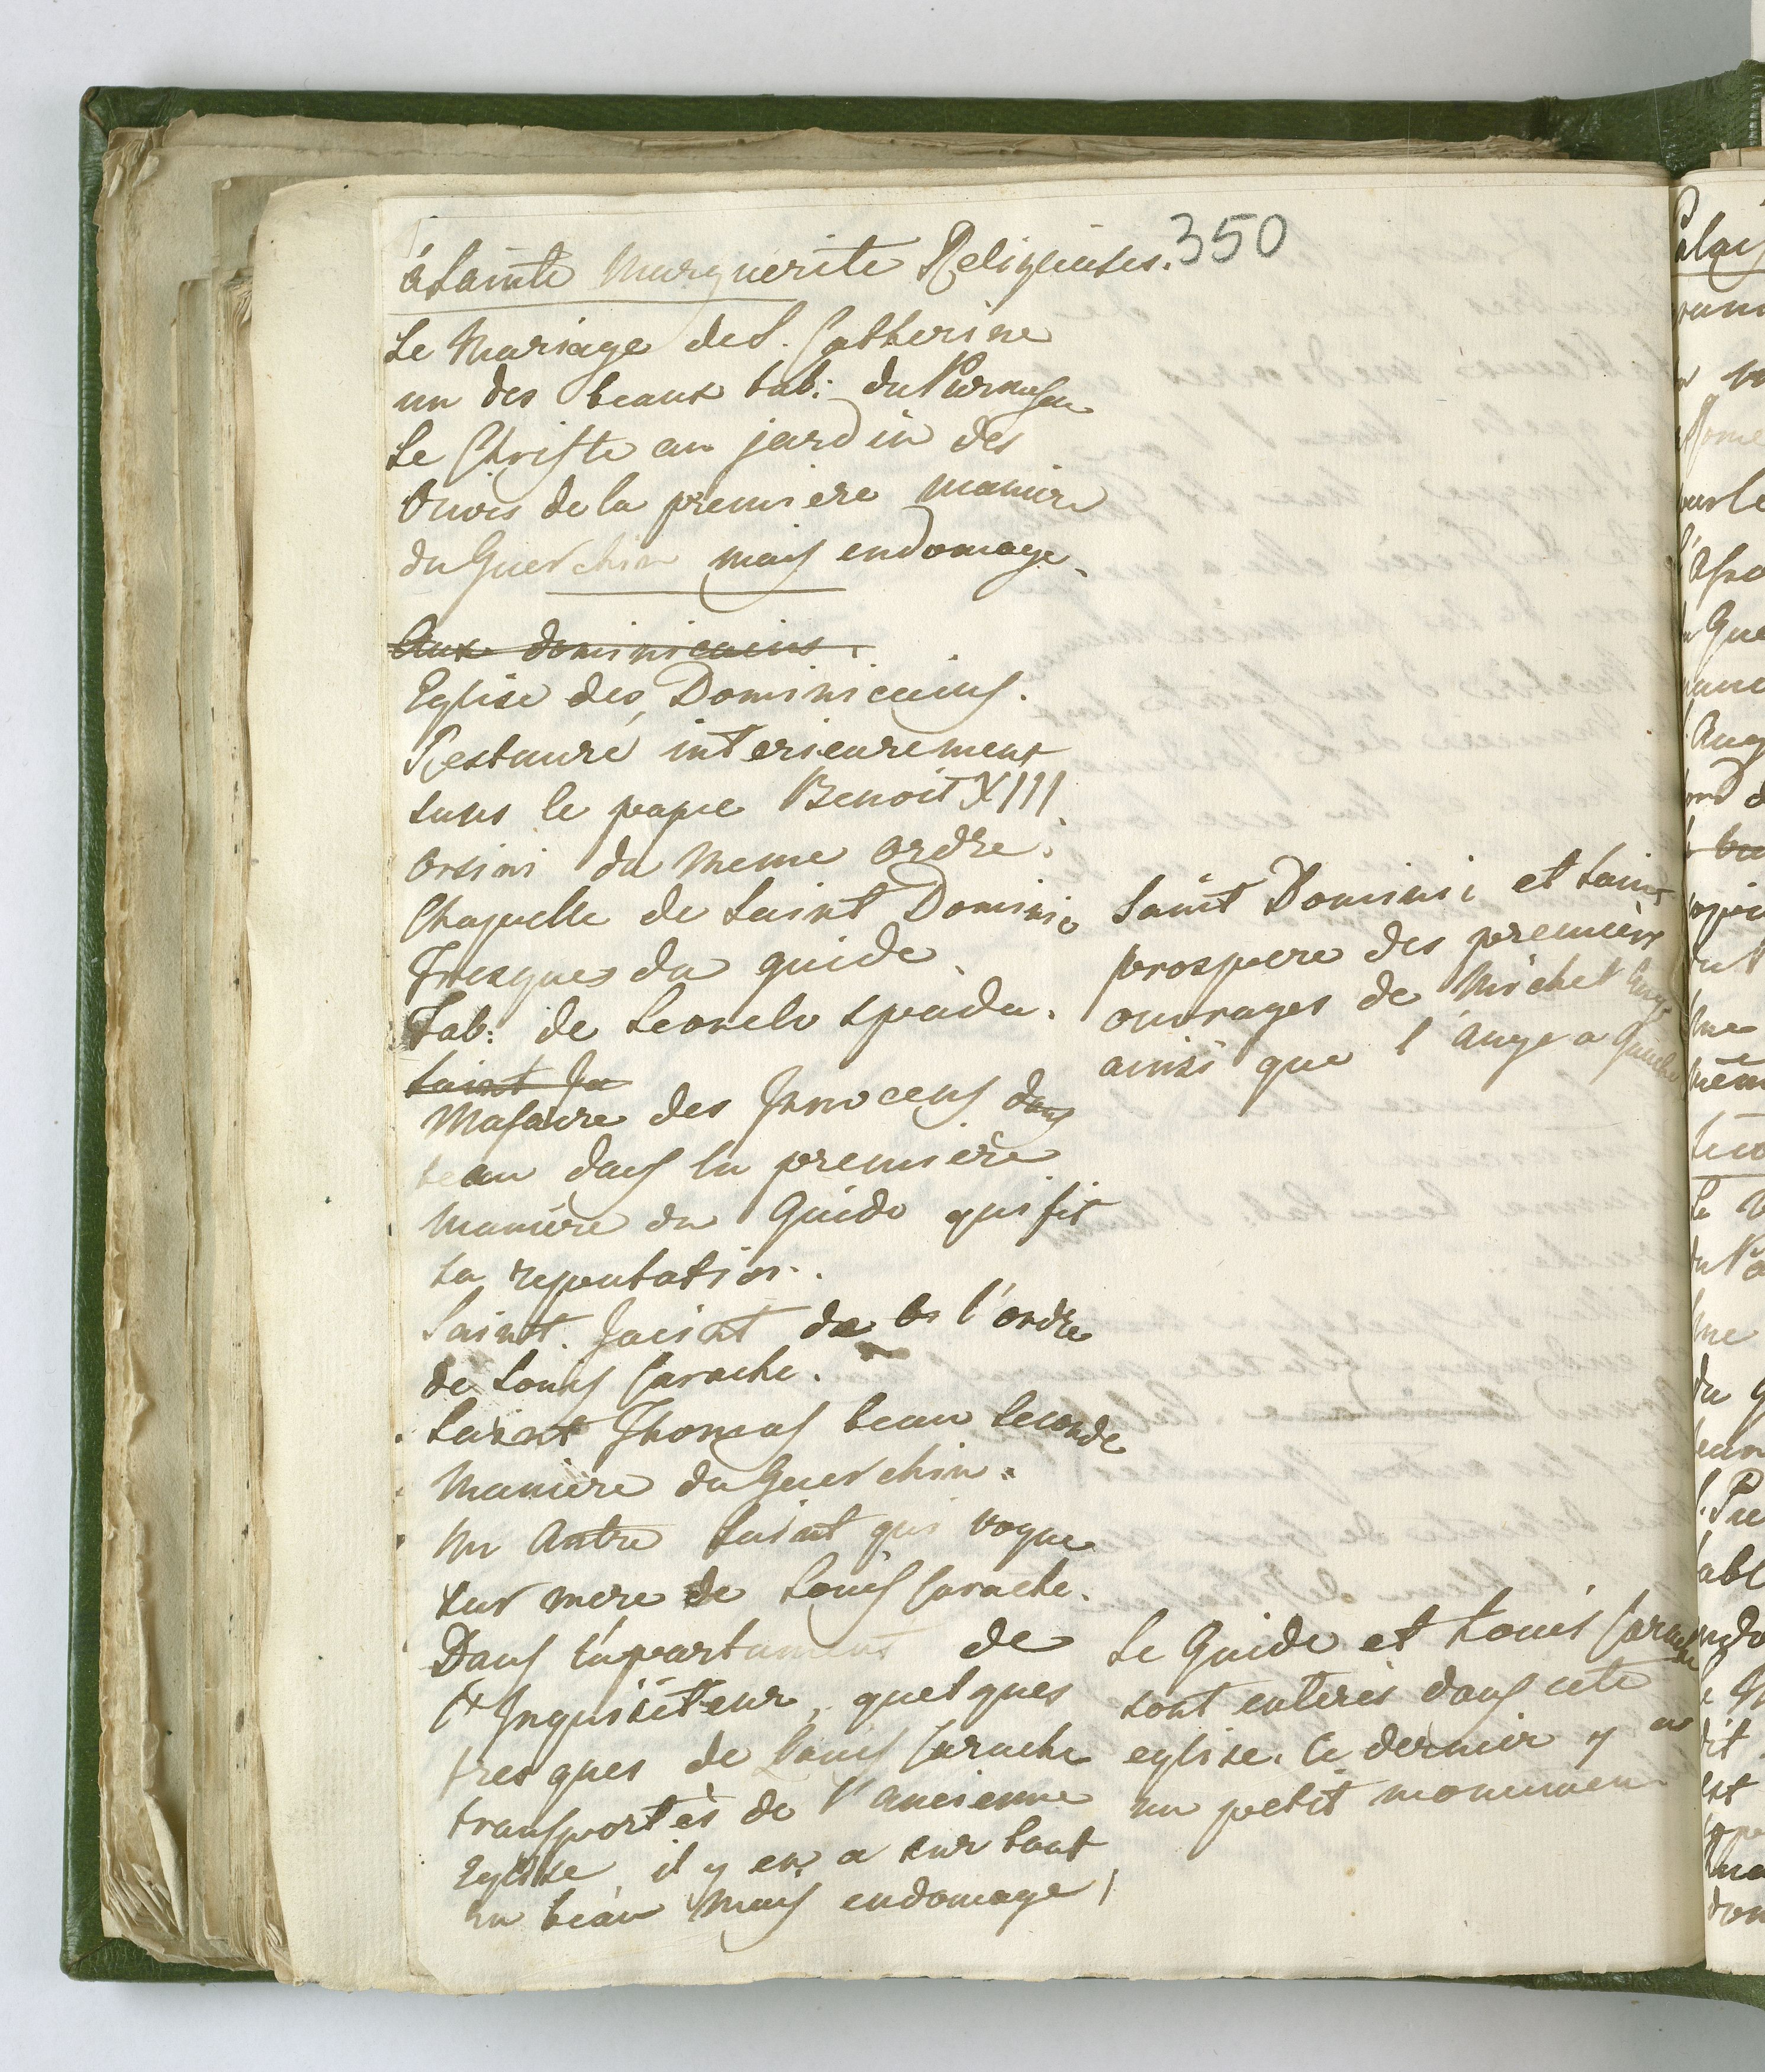 350
à Sainte Marguerite Religieuses.
Le Mariage de S. Catherine
un des beaux tab: du Parmesan
Le Christe au jardin des
Olives de la premiere maniere
du Guerchin mais endomage.
Aux dominicains.
Eglise des Dominicains.
Restauré interieurement
sous le pape Benoit XIII
Orsini du meme ordre.
Chapelle de Saint Dominic
fresques du guide.
Tab: de Leonelo spada.
Saint Ja
Masacre des Innocens dans
beau dans la première
maniére du Guido qui fit
sa reputation.
Saint Jacint de l'ordre
de Louis Carache.
Saint Thomas beau seconde
maniere du Guerchin.
un Autre Saint qui vogue
sur mere de Louis Carache.
Dans l'apartument de
l'Inquisiteur, quelques
fresques de Louis Carache
transportés de l'ancienne
Eglise, il y en a sur tout
un beau mais endomage,
Saint Domini et saint
prospere des premiers
ouvrages de Michel Ange
ainsi que l'ange a Gauche
Le Guide et Louis Carache
sont enterés dans cete
eglise. Ce dernier y a
un petit monument